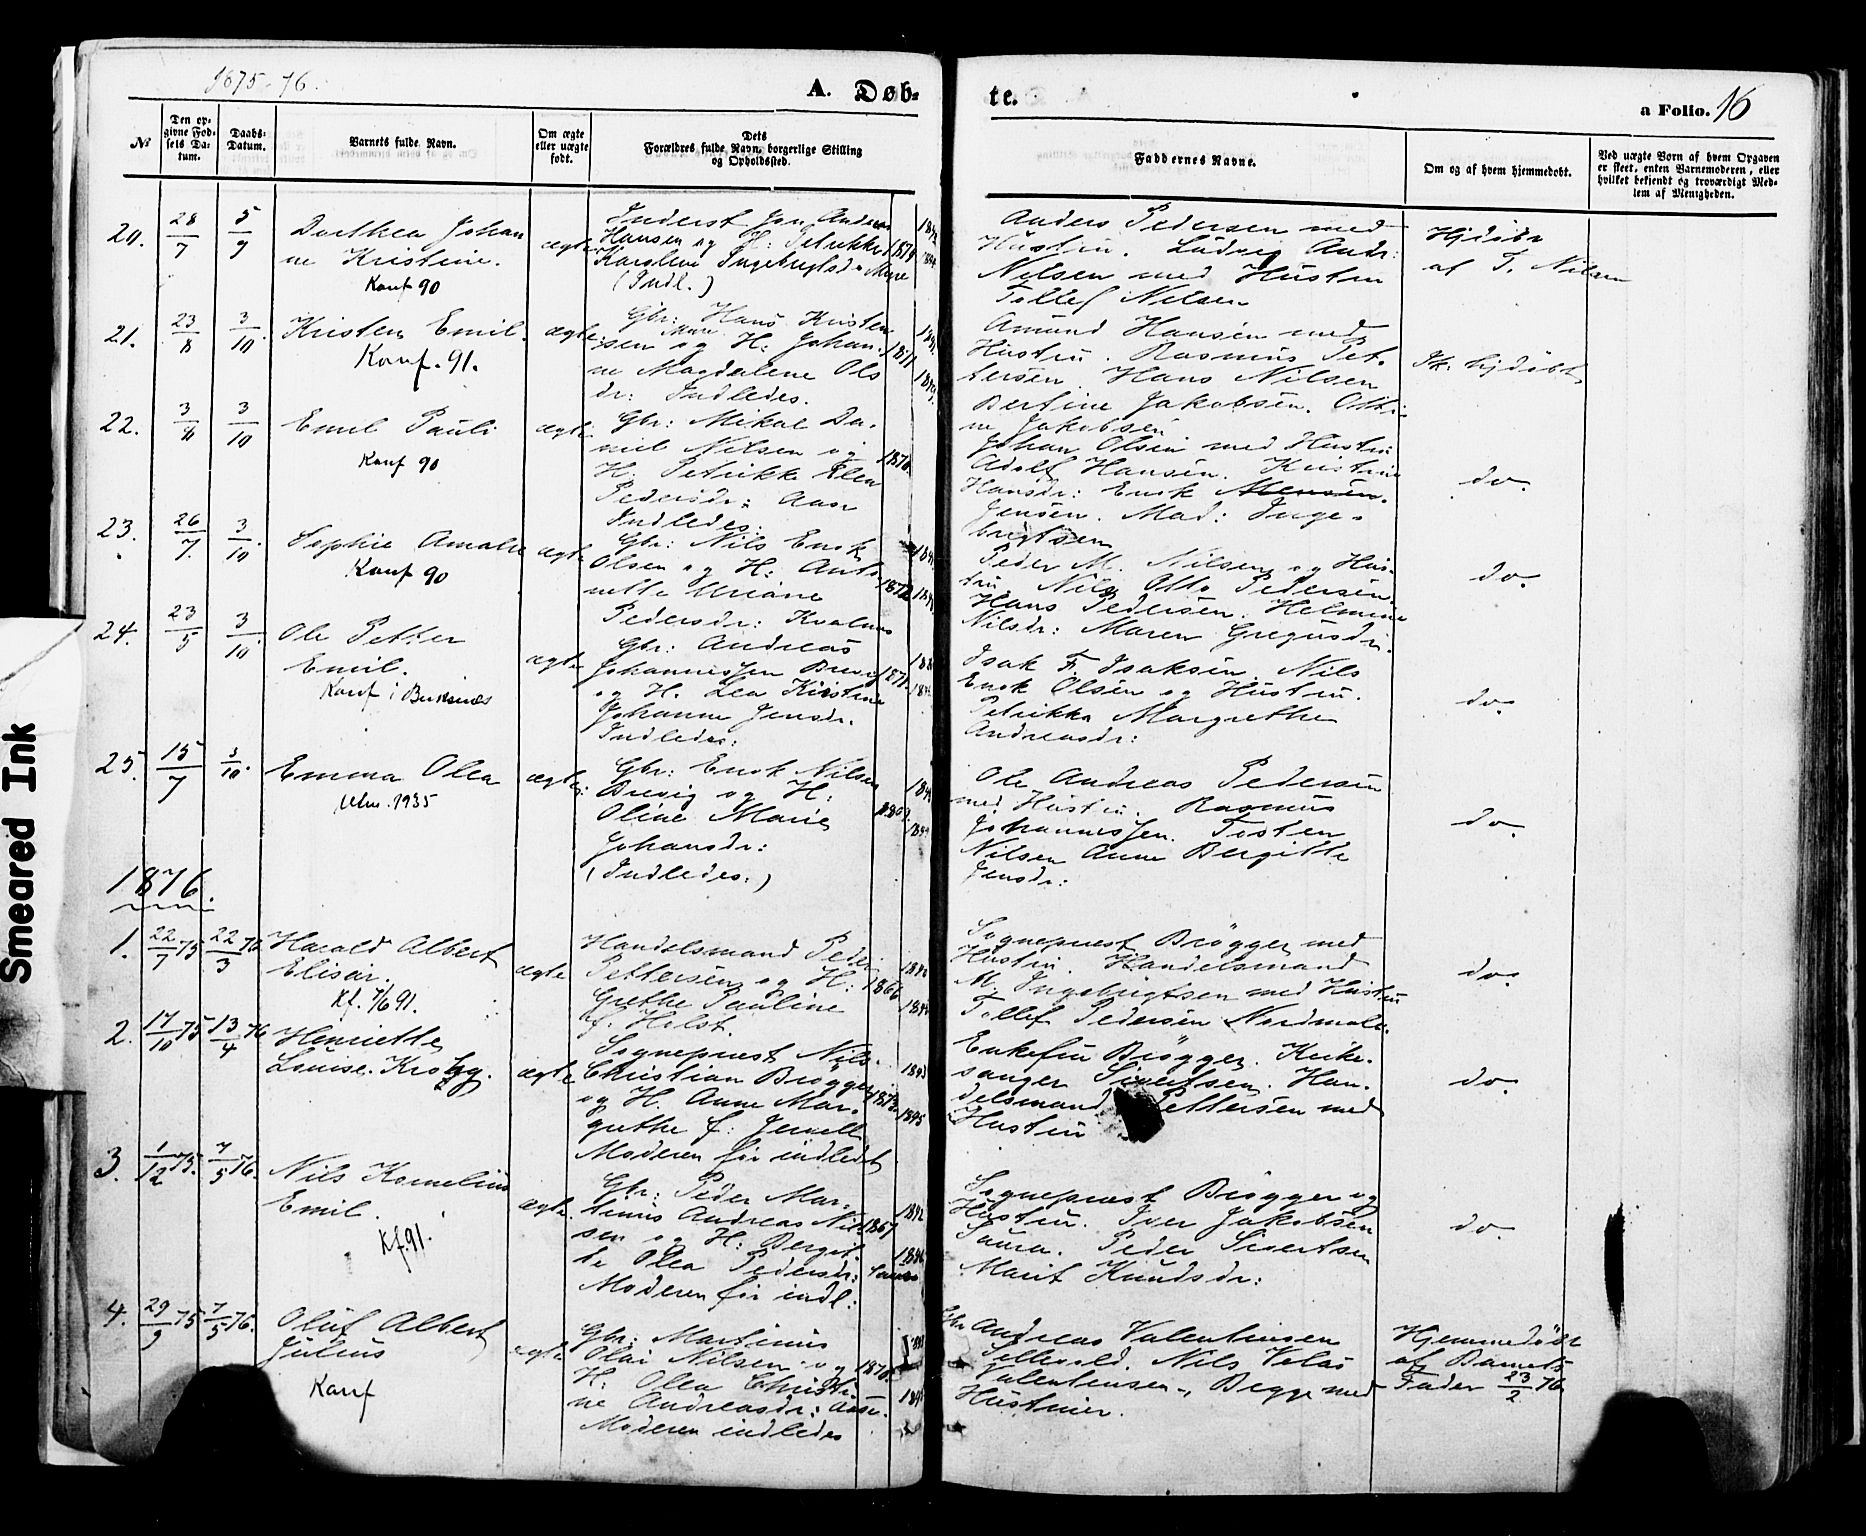 1875-76.
A. Døb-
te.
a Folio. 16
№
Den op-
givne Fød-
sels Da-
tum.
Daabs-
Datum.
Barnets fulde Navn.
Om ægte
eller uægte
født.
Dets
Forældres fulde Navn, borgerlige Stilling
og Opholdssted.
Faddernes Navne.
Om og af hvem hjemmedøbt.
Ved uægte Børn af hvem Opgaven
er skeet, enten Barnemoderen, eller
hvilket bekjendt og troværdigt Med-
lem af Menigheden.
20.
28/7
5/9
Dorthea Johan
ne Kristine.
Konf 90
ægte
Inderst Jon Anders
Hansen og H: Petrikke
Karoline Ingebrigtsd. Myre
(Indl.)
1874
Anders Pedersen med
Hustru. Ludvig Andr:
Nilsen med Hustru
Tollef Nilsen
Hjdøbt
af T. Nilsen
21.
23/8
3/10
Kristen Emil.
Konf. 91.
ægte
Gbr: Hans Kristen
sen og H: Johan-
ne Magdalene Ols
dr: Indledes.
1871
Amund Hansen med
Hustru. Rasmus Pet-
tersen. Hans Nilsen
Bertine Jakobsen. Otti-
ne Jakobsen
Ik. hjdøbt
22.
3/8
3/10
Emil Pauli
Konf 90
ægte
Gbr: Mikal Da-
niel Nilsen og
H: Petrikke Elen
Pedersdr: Aase
Indledes:
1870
Johan Olsen med Hustru
Adolf Hansen. Kristine
Hansdr: Enok
Jensen. Mad: Inge-
brigtsen
do.
23.
26/7
3/10
Sophie Amalie
Konf 90
ægte
Gbr: Nils Enok
Olsen og H: Anto-
nette Uriane
Pedersdr: Kvalnes
1872
Peder M. Nilsen og Hus-
tru Nils Otto Pedersen.
Hans Pedersen. Helmine
Nilsdr: Maren Gregusdr.
do.
24.
23/5
3/10
Ole Petter
Emil.
Konf i Buksnes
ægte
Gbr: Andreas
Johannessen Brevig
og H. Lea Kirstine
Johanne Jensdr.
Indledes:
1871.
Isak F. Isaksen. Nils
Enok Olsen og Hustru.
Petrikke Margrethe
Andreasdr:
do.
25.
15/7
3/10.
Emma Olea
Utm. 1935
ægte:
Gbr: Enok Nilsen
Brevig og H:
Oline Marie
Johansdr:
(Indledes.)
1869.
Ole Andreas Pedersen
med Hustru. Rasmus
Johannessen. Tosten
Nilsen Anne Bergitte
Jensdr:
do.
1876.
1.
22/7 75
22/3 76
Harald Albert
Elisar.
Kf. 7/6 91.
ægte
Handelsmand Peder
Pettersen og H:
Grethe Pauline
f. Holst.
1866
Sognepræst Brøgger med
Hustru. Handelsmand
M. Ingebrigtsen med Hustru
Tollef Pedersen Nordmole.
do.
2.
17/10 75
13/4 76
Henriette
Louise. Krohg.
ægte
Sognepræst Nils
Christian Brøgger
og H. Anne Mar-
grethe f: Jervell
Moderen før indledt
1873
1845
Enkefru Brøgger. Kirke-
sanger Sivertsen. Han-
delsmand Pettersen med
Hustru
do.
3.
1/12 75.
7/5 76.
Nils Kornelius
Emil.
Kf. 91.
ægte.
Gbr: Peder Mar-
tinus Andreas Nil-
sen og H: Bergit-
te Olea Pedersdr:
Moderen før indl:
1867
1842
Sognepræst Brøgger og
Hustru. Iver Jakobsen
Saura. Peder Sivertsen
Marit Knudsdr:
do.
4.
29/9 75
7/5 76.
Oluf Albert
Julius
Konf
ægte
Gbr: Martinus
Olai Nilsen og
H: Olea Christi-
ne Andreasdr: Aase.
Moderen indledes
1870.
Gbr Andreas Valentinsen
Sellevold. Nils Velas
Valentinsen, Begge med
Hustruer.
Hjemmedøbt
af Barnets
Fader 23/2 76
Smeared Ink